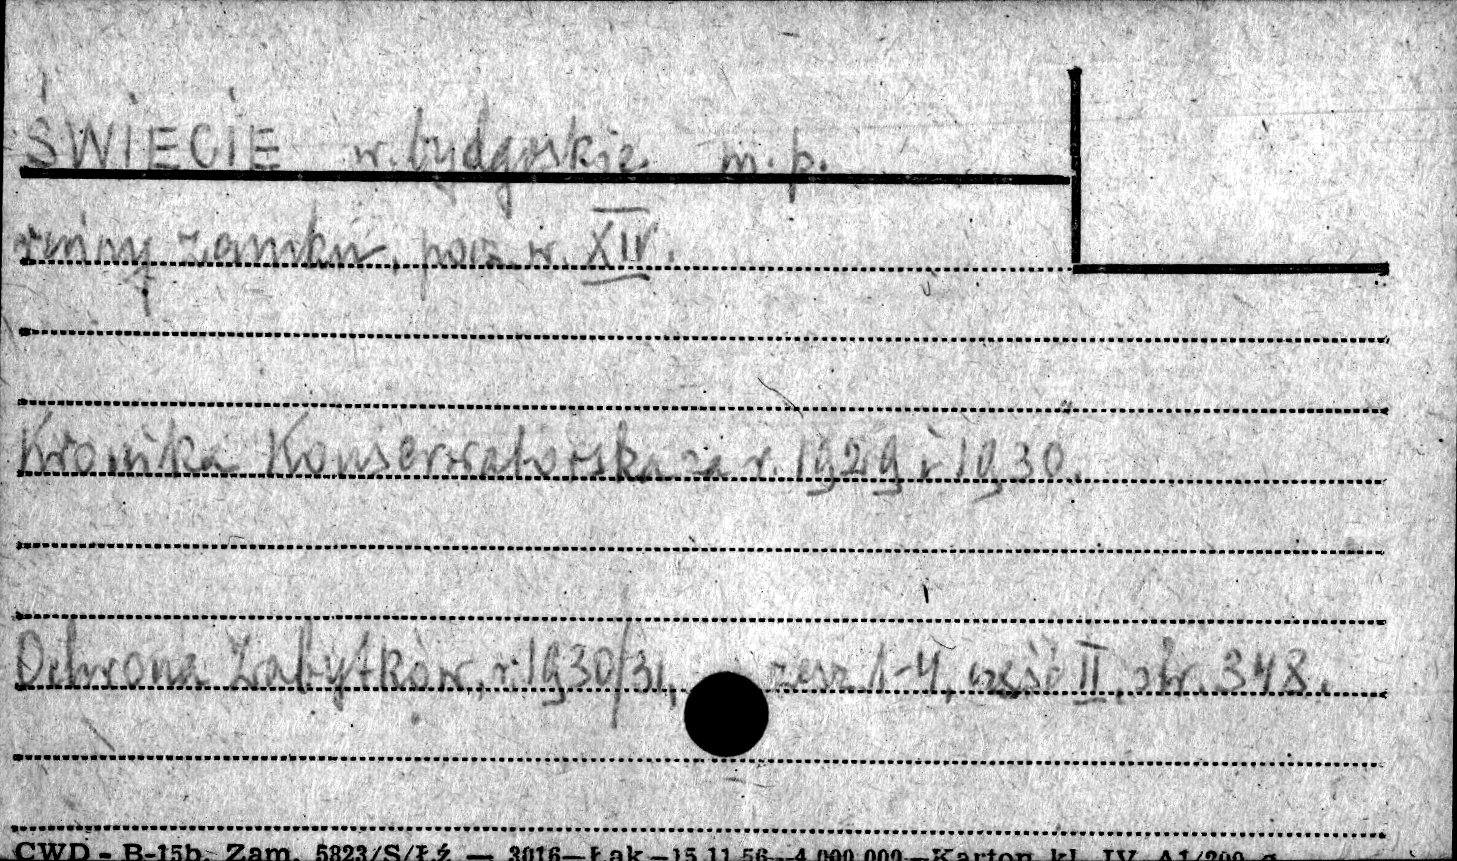 ŚWIECIE w. bydgoskie m. p.
ruiny zamku, pocz. w. XIV.
Kronika Konserwatorska za r. 1929 i 1930.
Ochrona Zabytków, r. 1930/31, zesz 1-4, część II, str. 348.
CWD - B-15b. Zam. 5823/S/Łź — 3016—Łąk—15.11.56—4.000.000—Karton kl. IV A1/200 g